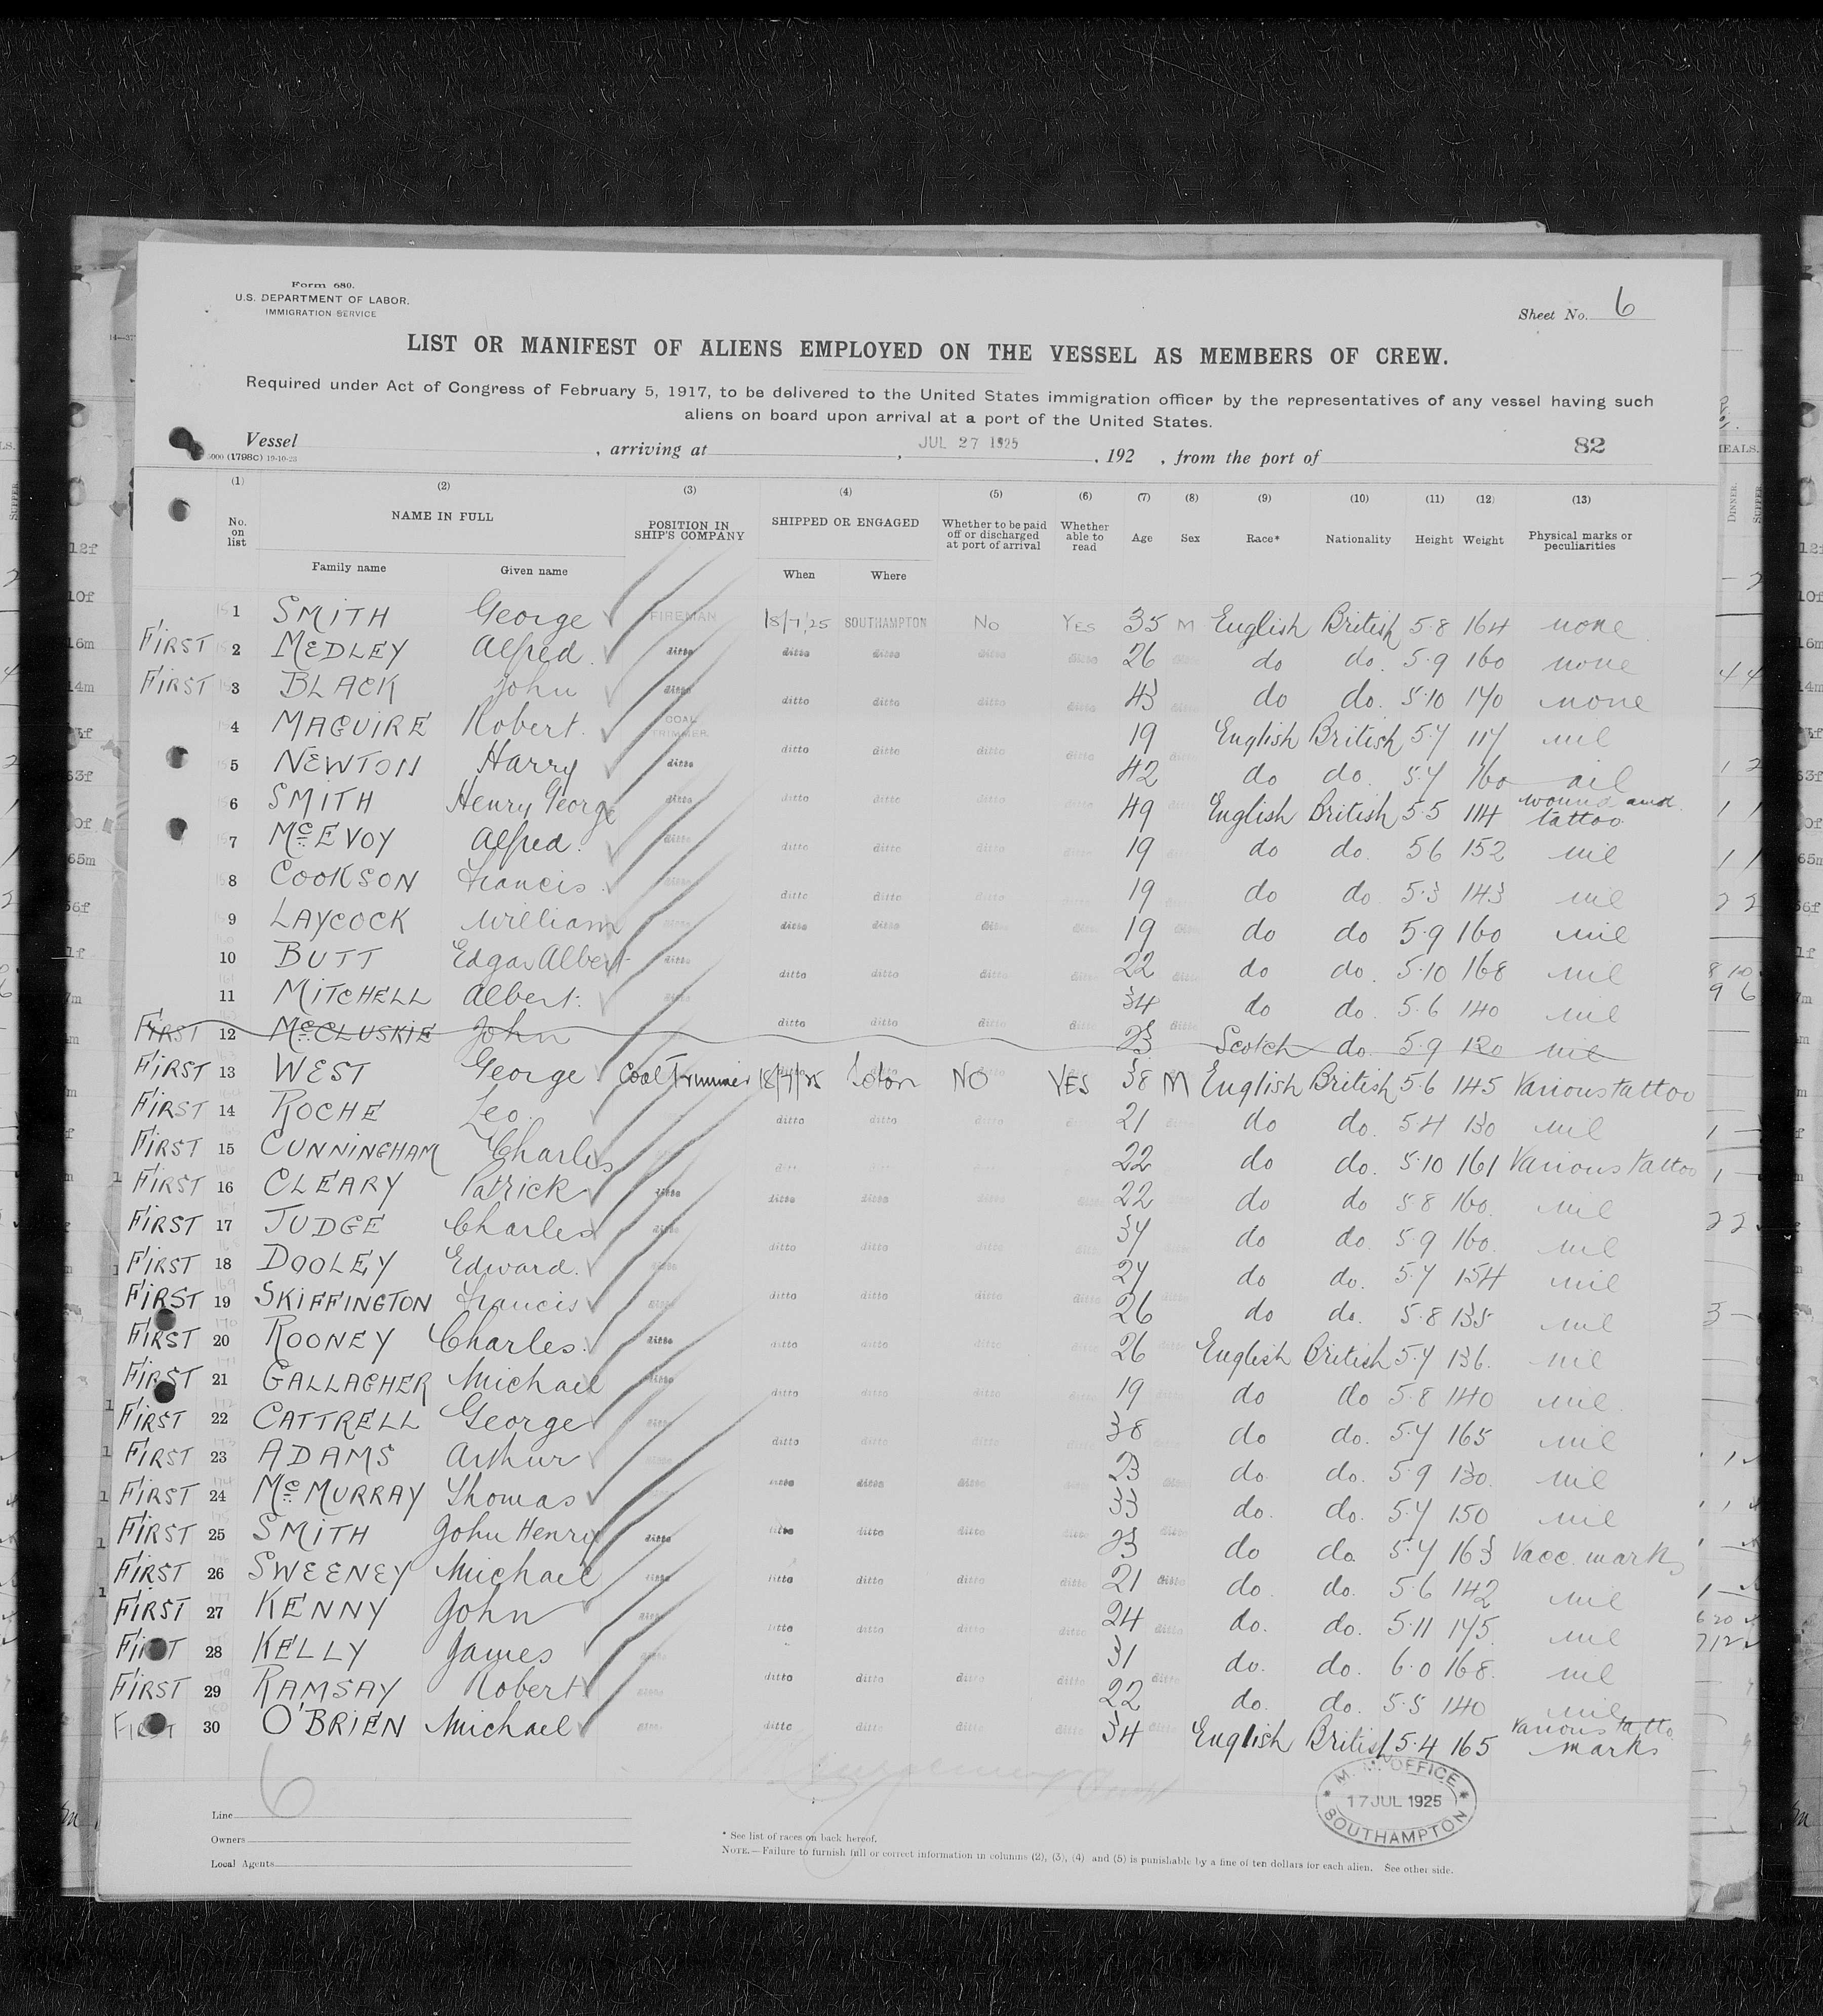 Form 680.
U.S. DEPARTMENT OF LABOR.
IMMIGRATION SERVICE
Sheet No. 6
LIST OR MANIFEST OF ALIENS EMPLOYED ON THE VESSEL AS MEMBERS OF CREW.
Required under Act of Congress of February 5, 1917, to be delivered to the United States immigration officer by the representatives of any vessel having such
aliens on board upon arrival at a port of the United States.
Vessel , arriving at , JUL 27 1925 , 192 , from the port of 82
(1798C) 19-10-23
(1) (2) (3) (4) (5) (6) (7) (8) (9) (10) (11) (12) (13)
No. on list NAME IN FULL POSITION IN SHIP'S COMPANY SHIPPED OR ENGAGED Whether to be paid off or discharged at port of arrival Whether able to read Age Sex Race* Nationality Height Weight Physical marks or peculiarities
Family name Given name When Where
1 SMITH George FIREMAN 18/7/25 SOUTHAMPTON NO YES 35 M English British 5.8 164 none
FIRST 2 MEDLEY Alfred ditto ditto ditto ditto ditto 26 ditto do do. 5.9 160 none
FIRST 3 BLACK John ditto ditto ditto ditto ditto 43 ditto do do. 5.10 170 none
4 MAGUIRE Robert. COAL TRIMMER ditto ditto ditto ditto 19 English British 5.7 117 nil
5 NEWTON Harry ditto ditto ditto ditto 42 do do 5.7 160 nil
6 SMITH Henry George ditto ditto ditto ditto 49 English British 5.5 114 wound and tattoo
7 McEVOY Alfred. ditto ditto ditto ditto 19 do do. 5 6 152 nil
8 COOKSON Francis ditto ditto ditto 19 do do 5.3 143 nil
9 LAYCOCK William ditto ditto ditto ditto 19 do do 5.9 160 nil
10 BUTT Edgar Albert ditto ditto ditto ditto ditto 22 do do. 5.10 168 nil
11 MITCHELL Albert. 34 do do. 5.6 140 nil
FIRST 12 McCLUSKIE John ditto ditto ditto ditto 23 ditto Scotch do. 5.9 120 nil
FIRST 13 WEST George Coal Trimmer 18/7/25 Soton NO YES 38 M English British 5.6 145 Various tattoo
FIRST 14 ROCHE Leo. ditto ditto ditto ditto 21 do do. 5 4 130 nil
FIRST 15 CUNNINGHAM Charles 22 do do. 5.10 161 Various tattoo
FIRST 16 CLEARY Patrick ditto ditto ditto ditto ditto 22 do do 5 8 160. nil
FIRST 17 JUDGE Charles ditto ditto ditto ditto 37 do do. 5.9 160. nil
FIRST 18 DOOLEY Edward. 27 do do. 5.7 154 nil
FIRST 19 SKIFFINGTON Francis ditto ditto ditto ditto 26 do do. 5.8 135 nil
FIRST 20 ROONEY Charles. ditto ditto ditto ditto ditto 26 ditto English British 5.7 136. nil
FIRST 21 GALLAGHER Michael ditto ditto ditto ditto ditto 19 ditto do do 5.8 140 nil.
FIRST 22 CATTRELL George 38 do do. 5.7 165 nil
FIRST 23 ADAMS Arthur ditto ditto ditto 23 do. do. 5.9 130. nil
FIRST 24 McMURRAY Thomas ditto ditto ditto 33 do. do. 5.7 150 nil
FIRST 25 SMITH John Henry ditto ditto ditto ditto ditto 23 do do. 5.7 163 Vacc. marks
FIRST 26 SWEENEY Michael ditto ditto ditto ditto ditto 21 ditto do. do. 5.6 142 nil
FIRST 27 KENNY John ditto ditto ditto ditto ditto 24 ditto do. do. 5.11 175. nil
FIRST 28 KELLY James 31 do. do. 6.0 168. nil
FIRST 29 RAMSAY Robert ditto ditto ditto ditto ditto 22 ditto do. do. 5.5 140 nil
FIRST 30 O'BRIEN Michael ditto ditto ditto ditto ditto 34 ditto English British 5.4 165 Various tatto marks
6
M. M. OFFICE
17 JUL 1925
SOUTHAMPTON
Line
Owners
Local Agents
* See list of races on back hereof.
NOTE.—Failure to furnish full or correct information in columns (2), (3), (4) and (5) is punishable by a fine of ten dollars for each alien. See other side.